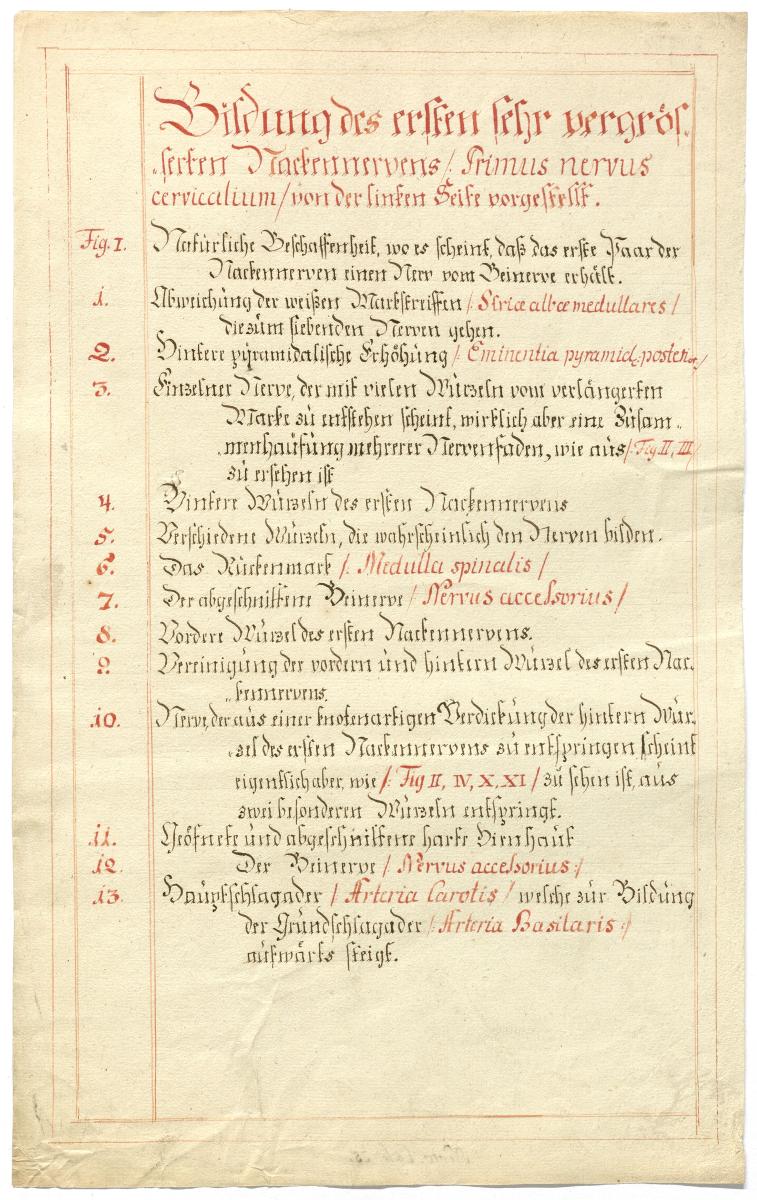 Bildung des ersten sehr vergrös„
„serten Nackennervens /: Primus nervus
cervicalium / von der linken Seite vorgestellt.
Fig. I. Natürliche Beschaffenheit, wo es scheint, daß das erste Paar der
Nackennerven einen Nerv vom Beinerve erhält.
1. Abweichung der weißen Markstreiffen /: Striæ albæ medullares /
die zum siebenden Nerven gehen.
2. Hintere pyramidalische Erhöhung /: Eminentia pyramid: posterior /
3. Einzelner Nerve, der mit vielen Wurzeln vom verlängerten
Marke zu entstehen scheint, wirklich aber eine Zusam„
„menhäufung mehrerer Nervenfäden, wie aus /: Fig II, III /
zu ersehen ist
4. Hintere Wurzeln des ersten Nackennervens
5. Verschiedene Wurzeln, die wahrscheinlich den Nerven bilden.
6. Das Rückenmark /: Medulla spinalis /
7. Der abgeschnittene Beinerve / Nervus accessorius /
8. Vordere Wurzel des ersten Nackennervens.
9. Vereinigung der vordern und hintern Wurzel des ersten Nac„
„kennervens.
10. Nerve, der aus einer knotenartigen Verdickung der hintern Wur„
„zel des ersten Nackennervens zu entspringen scheint
eigentlich aber, wie /: Fig II, IV, X, XI / zu sehen ist, aus
zwei besonderen Wurzeln entspringt.
11. Geöfnete und abgeschnittene harte Hirnhaut
12. Der Beinerve / Nervus accessorius :/
13. Hauptschlagader / Arteria Carotis / welche zur Bildung
der Grundschlagader /: Arteria Basilaris :/
aufwärts steigt.